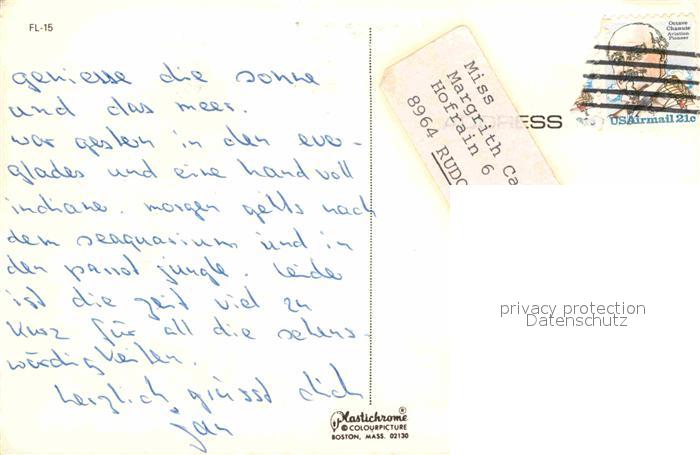 FL-15
geniesse die sonne
und das meer.
war gestern in den ever-
glades und eine handvoll
indianer. morgen gehts nach
dem seaquarium und in
den parrot jungle. leider
ist die zeit viel zu
kurz für all die sehens-
würdigkeiten.
herzlich grüsst dich
Jan
Plastichrome®
© COLOURPICTURE
BOSTON, MASS. 02130
Miss
Margrith Ca
Hofrain 6
8964 RUDO
ADDRESS
Octave
Chanute
Aviation
Pioneer
USAirmail 21c
privacy protection
Datenschutz